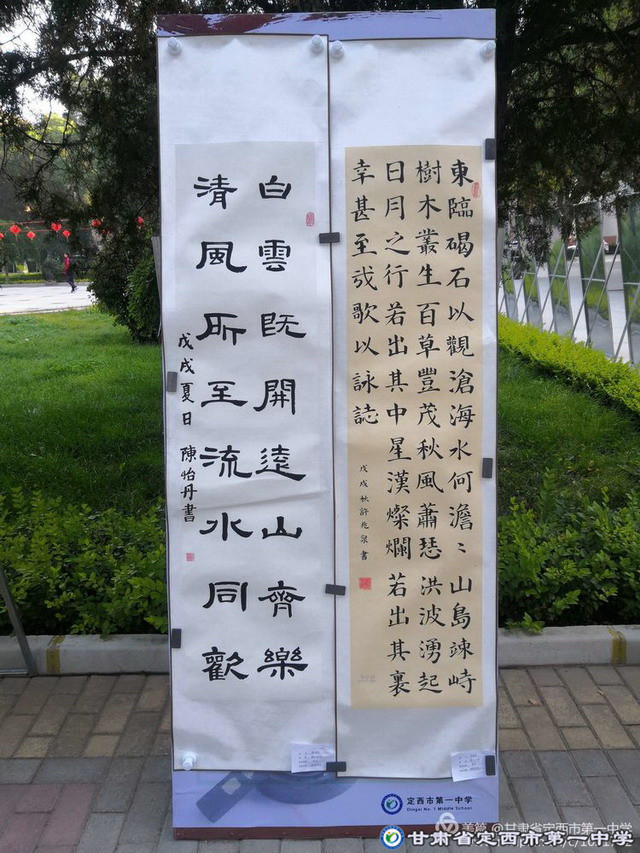 東臨碣石以觀滄海水何澹〻山島竦峙
樹木叢生百草豐茂秋風蕭瑟洪波湧起
日月之行若出其中星漢燦爛若出其裏
幸甚至哉歌以詠誌
戊戌秋許兆書
白雲既開遠山齊樂
清風所至流水同歡
戊戌夏日 陳怡丹書
定西市第一中学
Dingxi No. 1 Middle School
美篇 @甘肃省定西市第一中学
甘肃省定西市第一中学